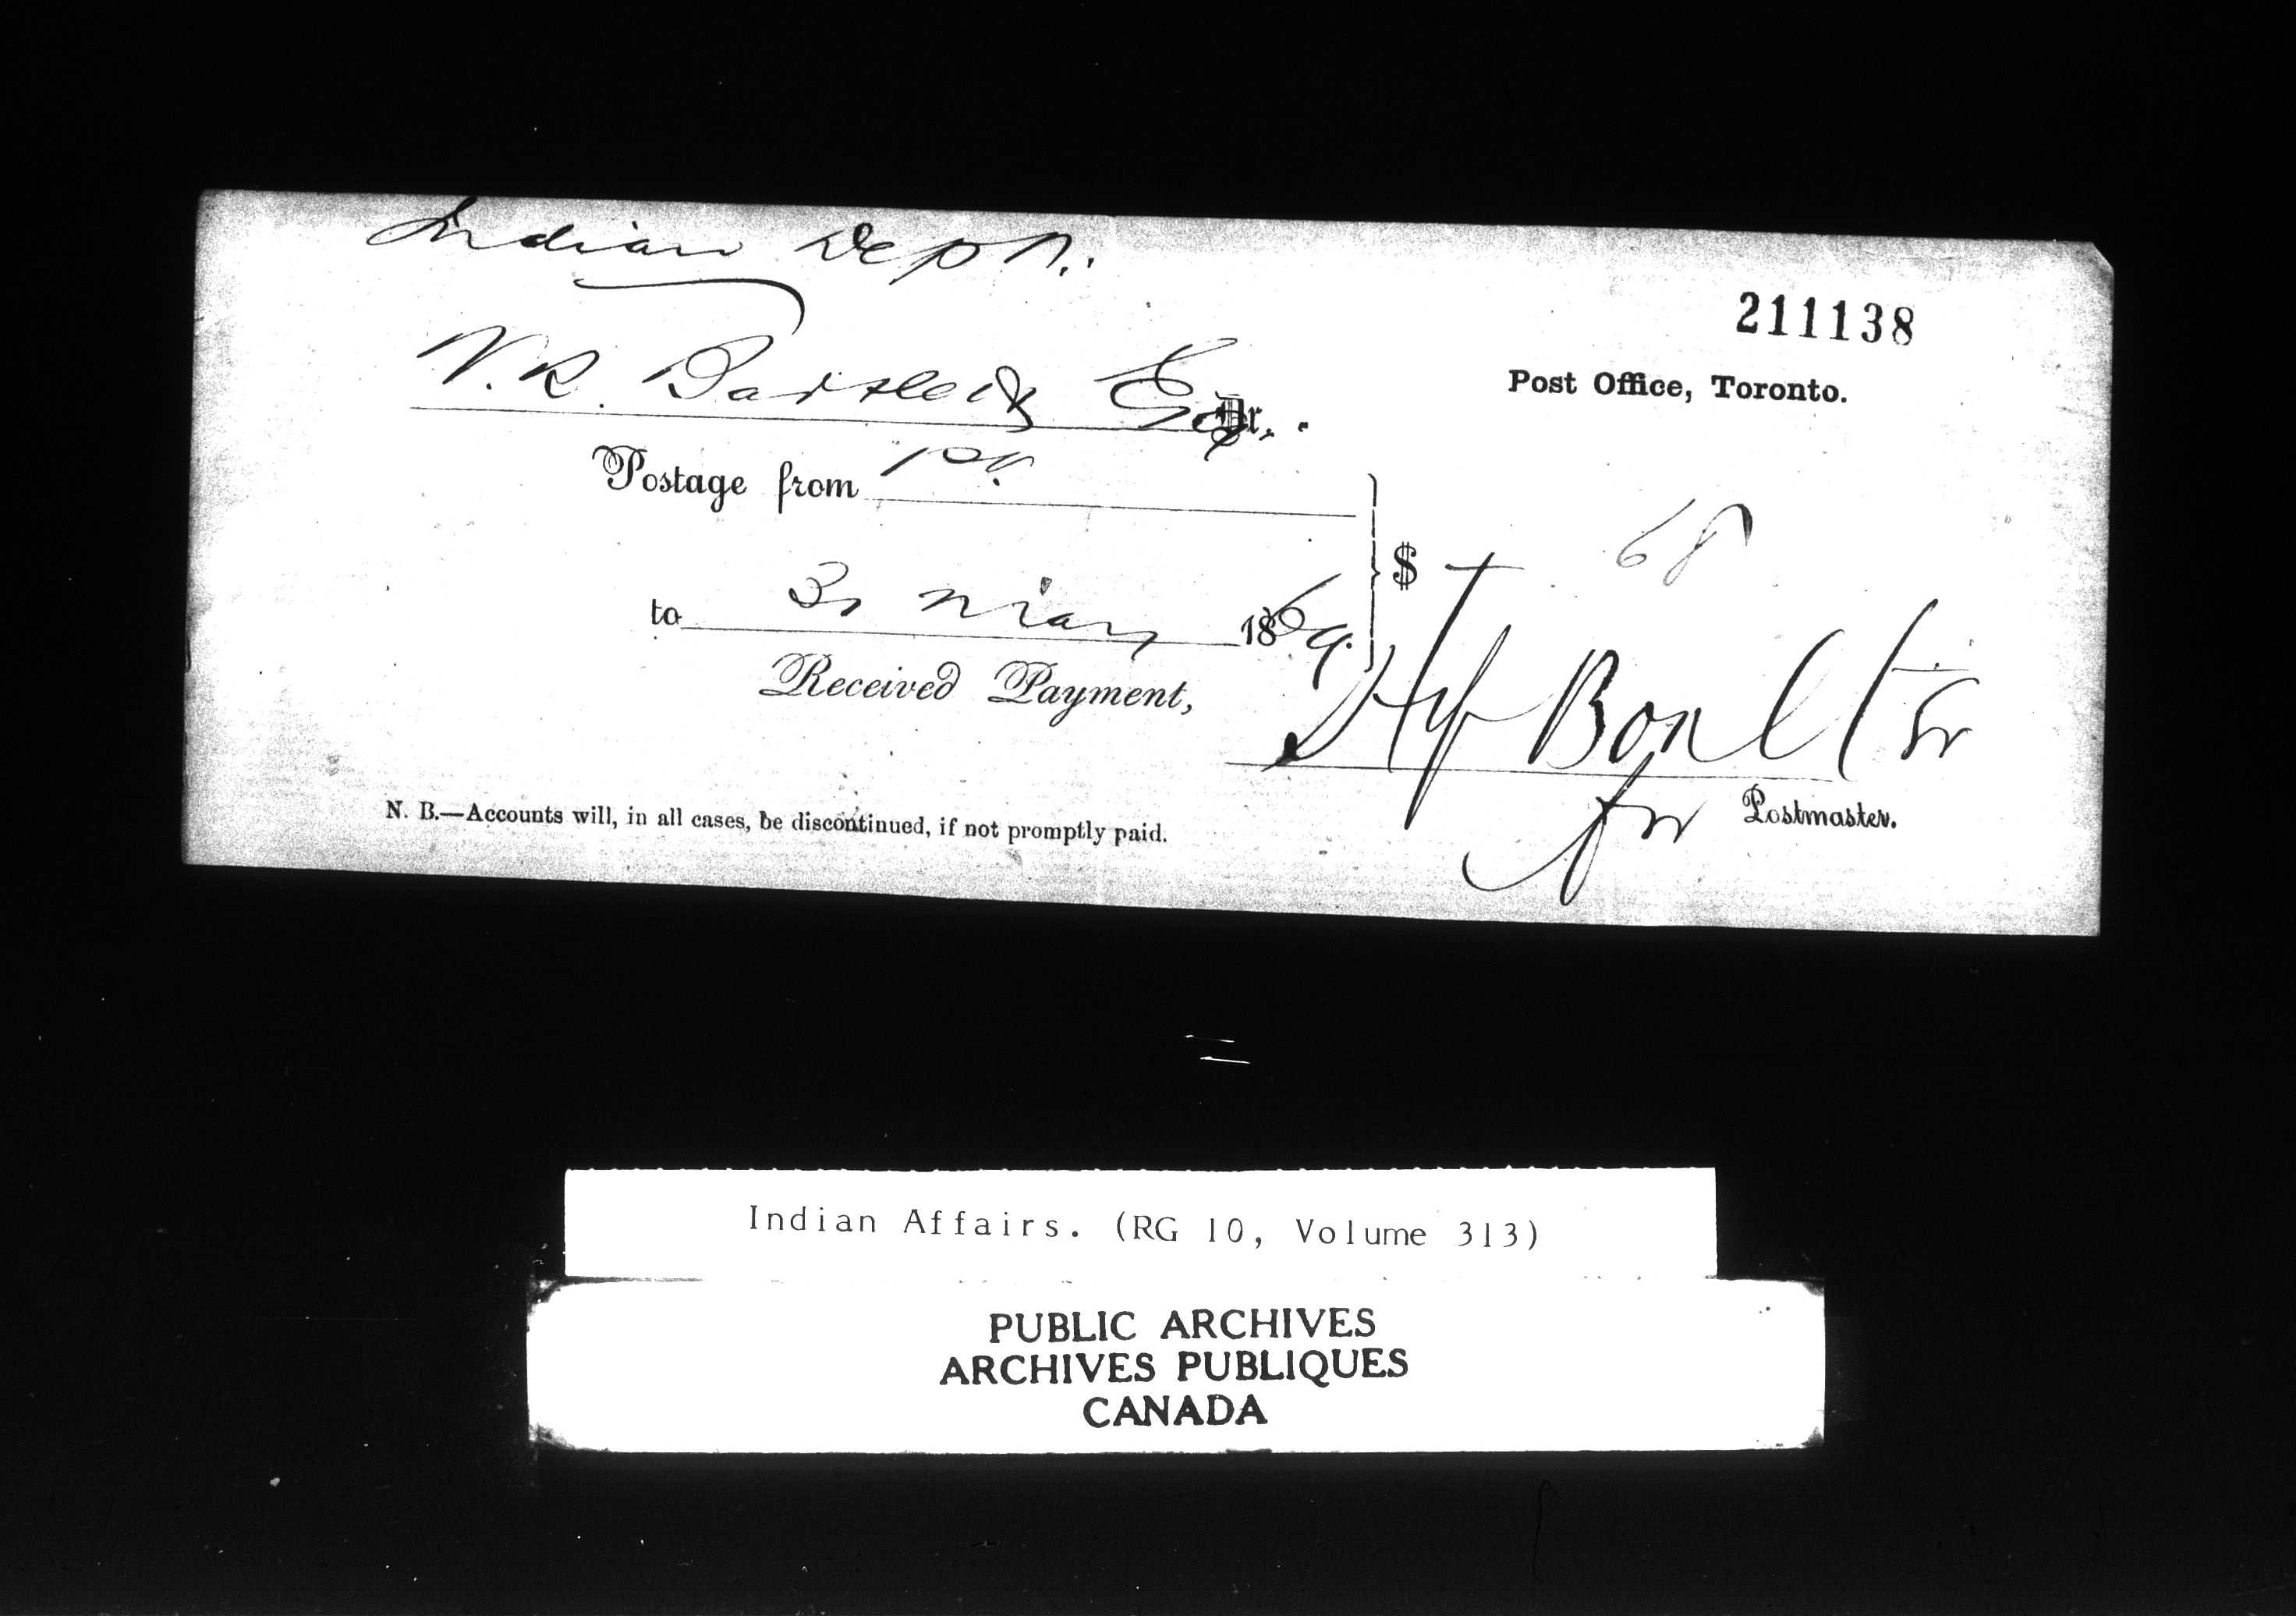 Indian Dept.
211138
Post Office, Toronto.
W. R. Bartlett Esq Dr,
Postage from 1st
to 31 May 1869.
$ 68
Received Payment,
Boulter
for Postmaster.
N. B.—Accounts will, in all cases, be discontinued, if not promptly paid.
Indian Affairs. (RG 10, Volume 313)
PUBLIC ARCHIVES
ARCHIVES PUBLIQUES
CANADA